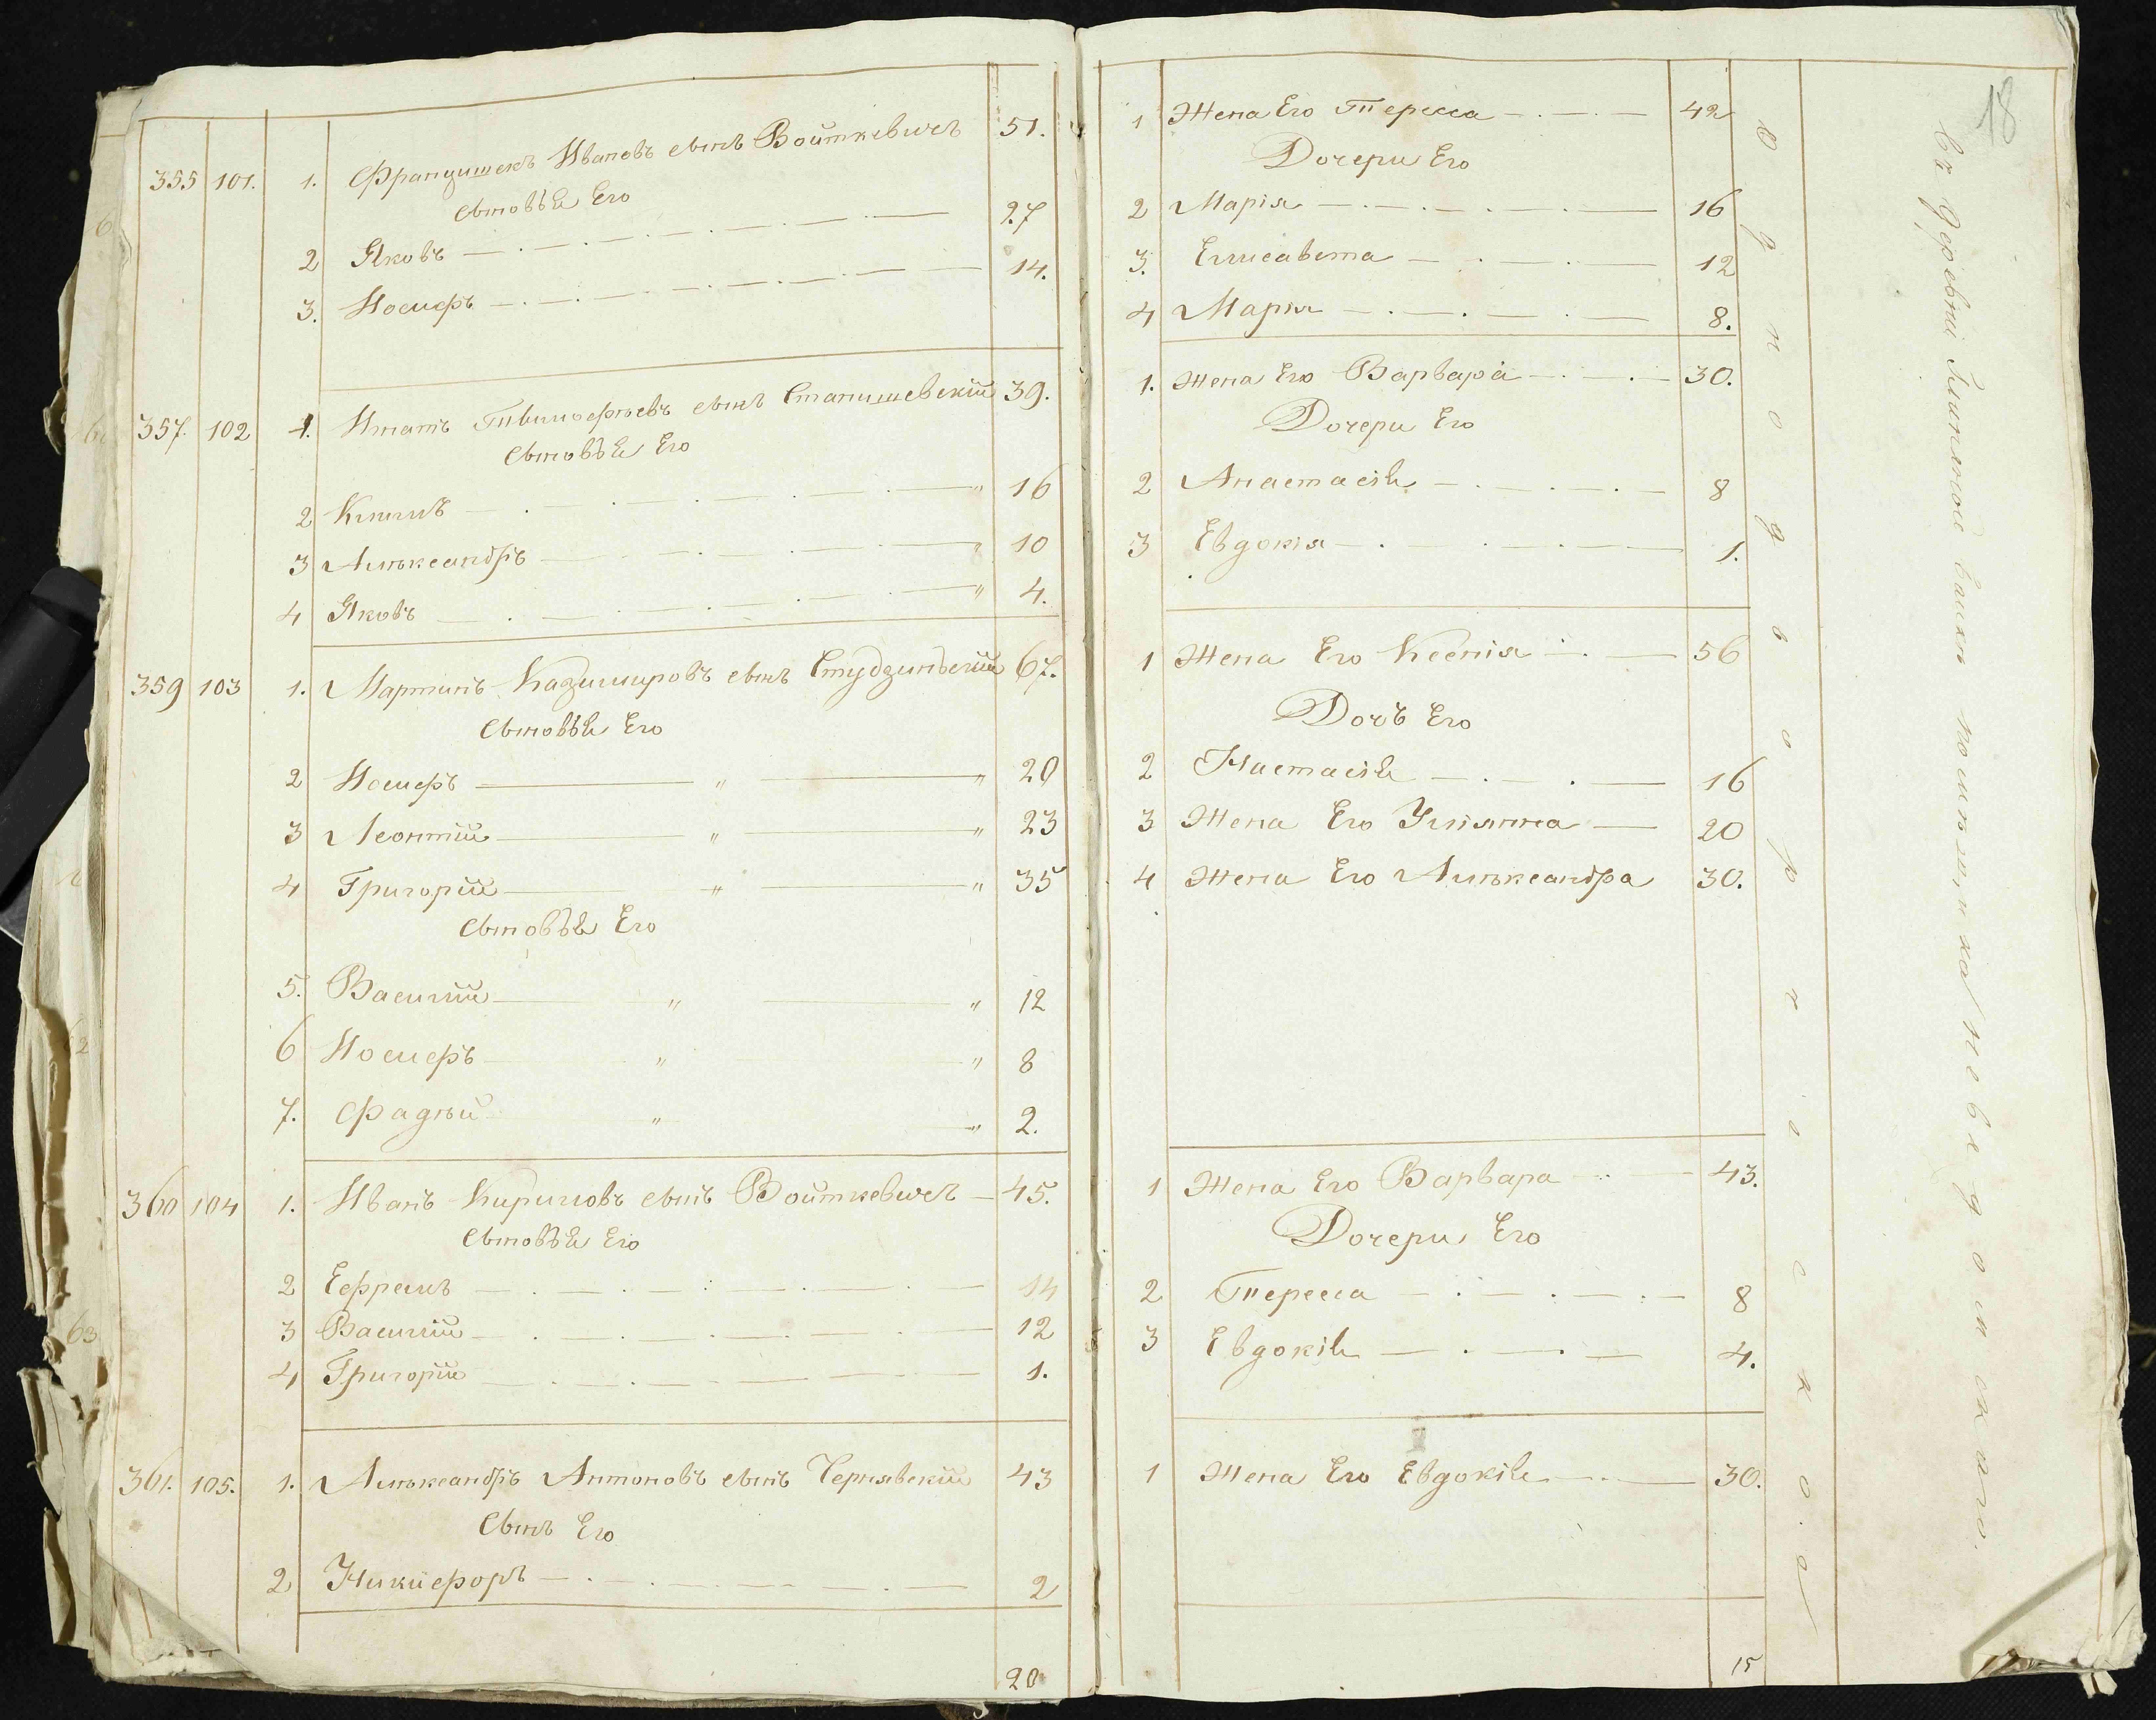 355 101. 1. Францишекъ Ивановъ сынъ Войткевичъ 51.
Сыновья Его
2 Яковъ 27
3. Иосифъ 14.
357. 102 1. Игнатъ сынъ Станишевскій 39.
Сыновья Его
2 16
3 Александръ 10
4 Яковъ 4.
359 103 1. Мартинъ Казимировъ сынъ Студзинскій 67.
Сыновья Его
2 Иосифъ " " 20
3 Леонтій " " 23
4 Григорій " " 35
Сыновья Его
5. Василій " " 12
6 Иосифъ " " 8
7. Фадѣй " " 2.
360 104 1. Иванъ Кириловъ сынъ Войткевичъ 45.
Сыновья Его
2 Ефремъ 14
3 Василій 12
4 Григорій 1.
361. 105. 1. Александръ Антоновъ сынъ Чернявскій 43
Сынъ Его
2 Никифоръ 2
20
18
1 Жена Его Тересса 42
Дочери Его
2 Марія 16
3. Елисавета 12
4 Марія 8.
1. Жена Его Варвара 30.
Дочери Его
2 Анастасія 8
3 Евдокія 1.
1 Жена Его Ксенія 56
Дочь Его
2 Настасія 16
3 Жена Его Улиянна 20
4 Жена Его Александра 30.
1 Жена Его Варвара 43.
Дочери Его
2 Тересса 8
3 Евдокія 4.
1 Жена Его Евдокія 30.
15
Однодворческого
Въ Деревни Глинной